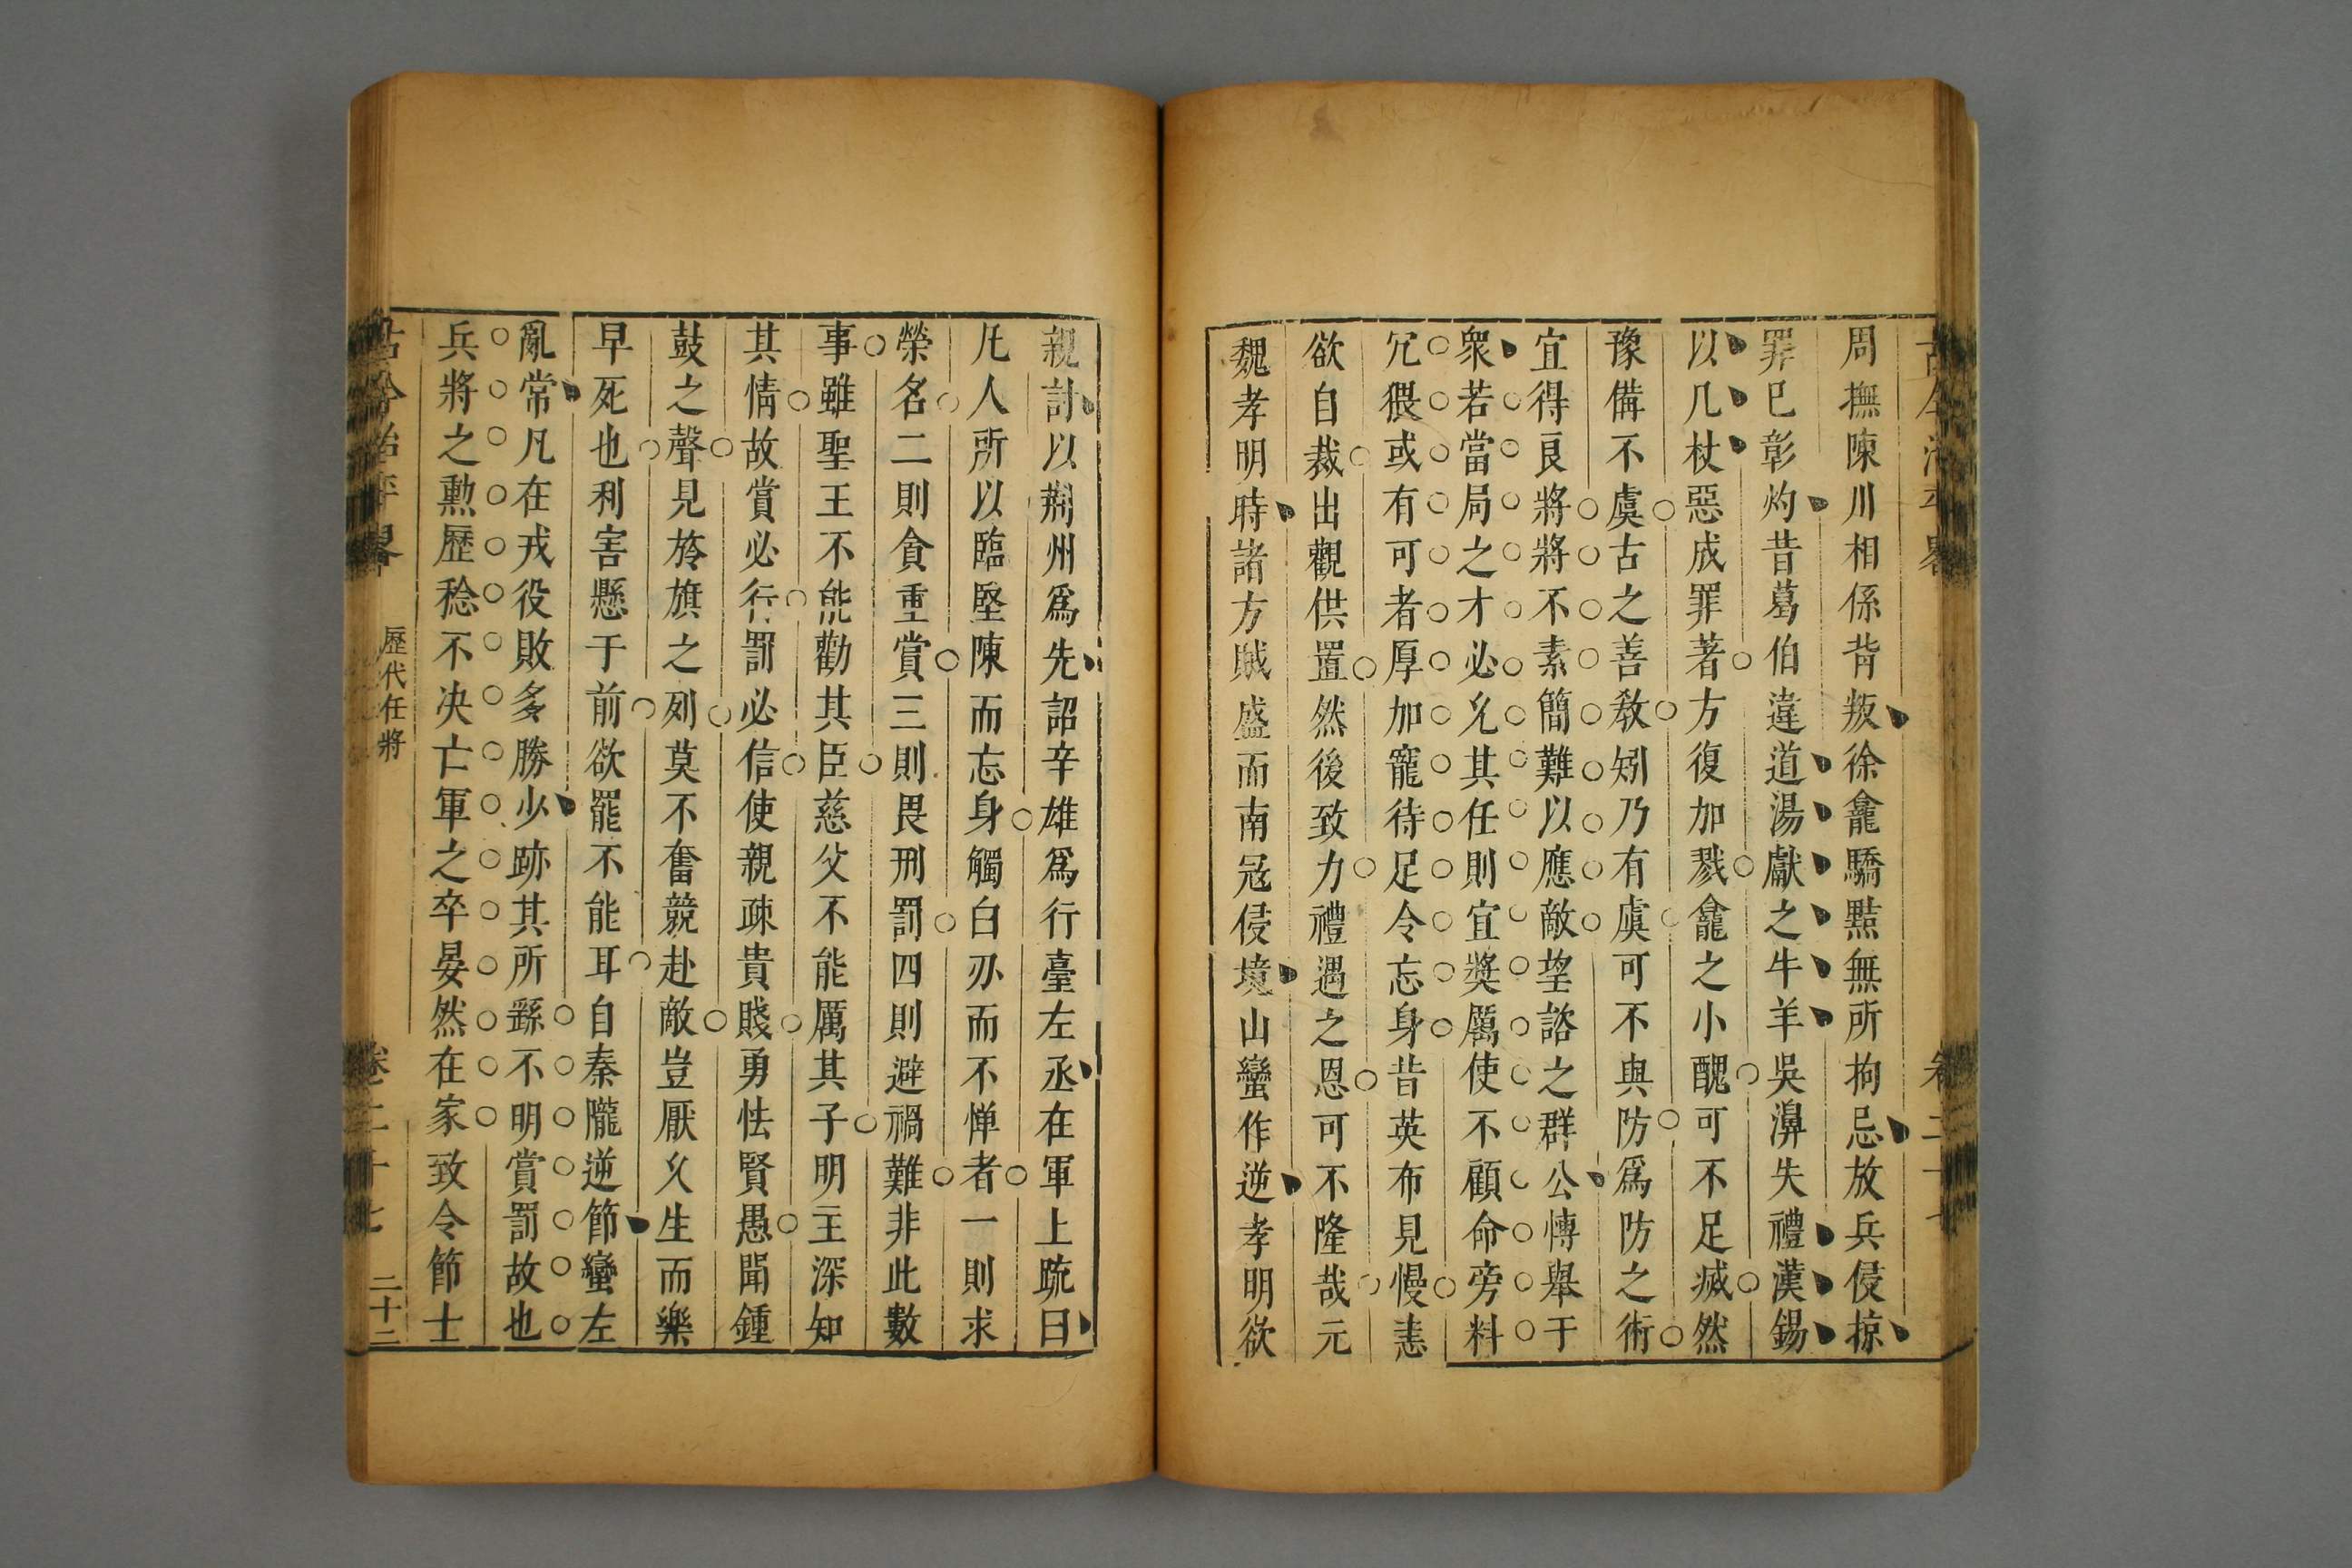 周撫陳川相係背叛徐龕驕黠無所拘忌放兵侵掠
罪巳彰灼昔葛伯違道湯獻之牛羊吳濞失禮漢錫
以几杖惡成罪著方復加戮龕之小醜可不足滅然
豫備不虞古之善敎矧乃有虞可不與防爲防之術
宜得良將將不素簡難以應敵望諮之群公慱舉于
衆若當局之才必允其任則宜奬厲使不顧命旁料
冗猥或有可者厚加寵待足令忘身昔英布見慢恚
欲自裁出觀供置然後致力禮遇之恩可不隆哉元
魏孝明時諸方賊盛而南冦侵境山蠻作逆孝明欲
親討以荆州爲先詔辛雄爲行臺左丞在軍上䟽曰
凡人所以臨堅陳而忘身觸白刃而不惮者一則求
榮名二則貪重賞三則畏刑罰四則避禍難非此數
事雖聖王不能勸其臣慈父不能厲其子明主深知
其情故賞必行罰必信使親疎貴賤勇怯賢愚聞鍾
鼓之聲見旍旗之列莫不奮競赴敵豈厭久生而樂
早死也利害懸于前欲罷不能耳自秦隴逆節蠻左
亂常凡在戎役敗多勝少跡其所繇不明賞罰故也
兵將之勲歷稔不决亡軍之卒晏然在家致令節士
古今治平畧
歷代任將
卷二十七
二十二